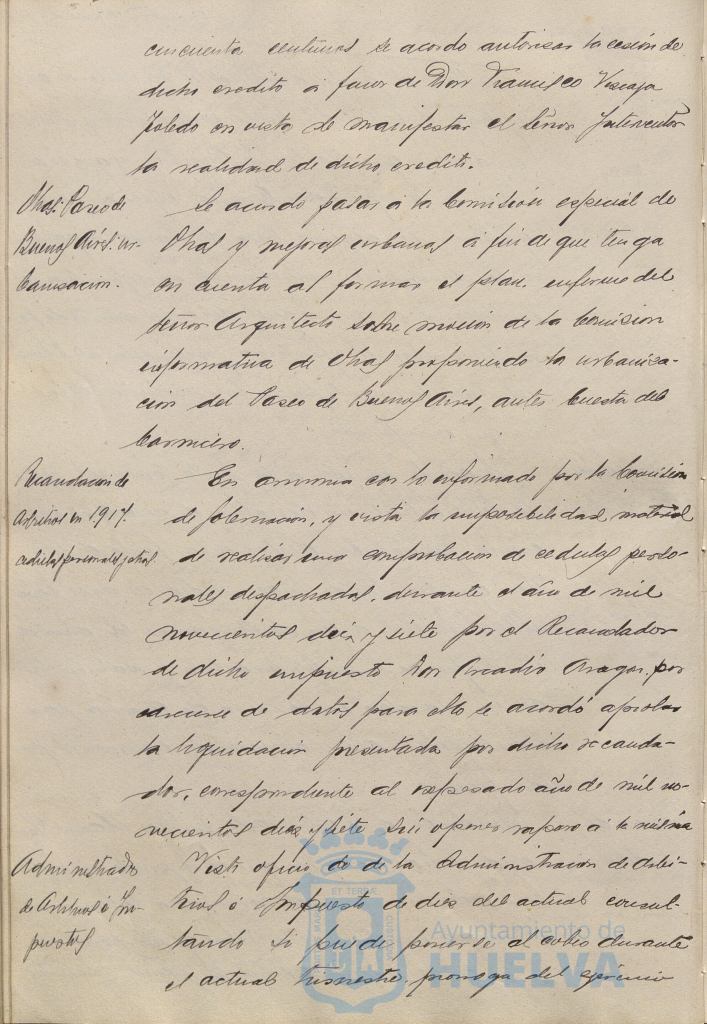 cincuenta centimos se acordo autorizar la cesión de
dicho credito á favor de Don Francisco Vizcaya
Toledo en vista de manifestar el Señor Interventor
la realidad de dicho credito.
Obas. Paseo de
Buenos Aires: ur-
banisacion.
Se acordo pasar á la Comisión especial de
Obras y mejoras urbanas á fin de que tenga
en cuenta al formar el plan, informe del
Señor Arquitecto sobre mocion de la Comision
informativa de Obras proponiendo la urbanisa-
cion del Paseo de Buenos Aires, antes Cuesta del
Carnicero.
Recaudacion de
Arbitrios en 1917.
cedulas personales y otros
En armonia con lo informado por la Comision
de Gobernación, y vista la imposibilidad material
de realizar una comprobacion de cedulas perso-
nales despachadas, durante el año de mil
novecientos diez y siete por el Recaudador
de dicho impuesto Don Arcadio Aragon, por
carecerse de datos para ello se acordó aprobar
la liquidacion presentada por dicho recauda-
dor, correspondiente al expresado año de mil no-
vecientos diez y siete sin oponer reparo á la misma
Administrador
de Arbitrios é Im-
puestos
Visto oficio de la Administracion de Arbi-
trios é Impuestos de diez del actual consul-
tando si puede ponerse al cobro durante
el actual trimestre, prorroga del ejercicio
Ayuntamiento de
HUELVA